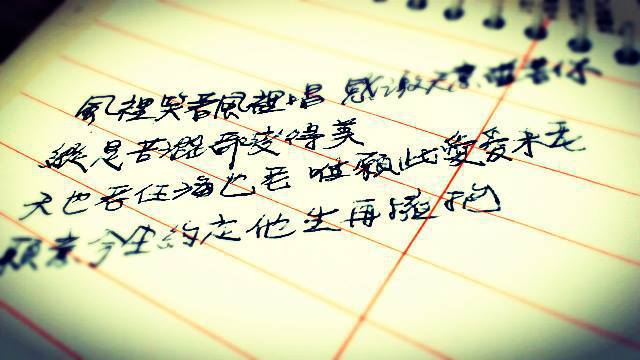 風裡笑著風裡唱 感激天意碰著你
縱是苦澀都變得美
天也老任海也老 唯願此愛愛未老
願意今生約定他生再擁抱